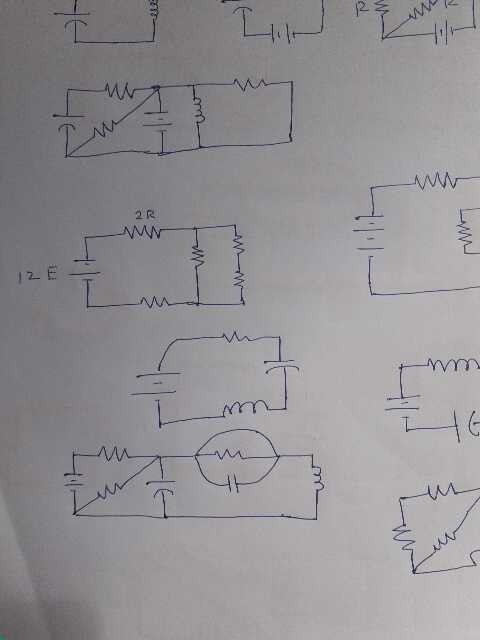 R R
2R
12 E